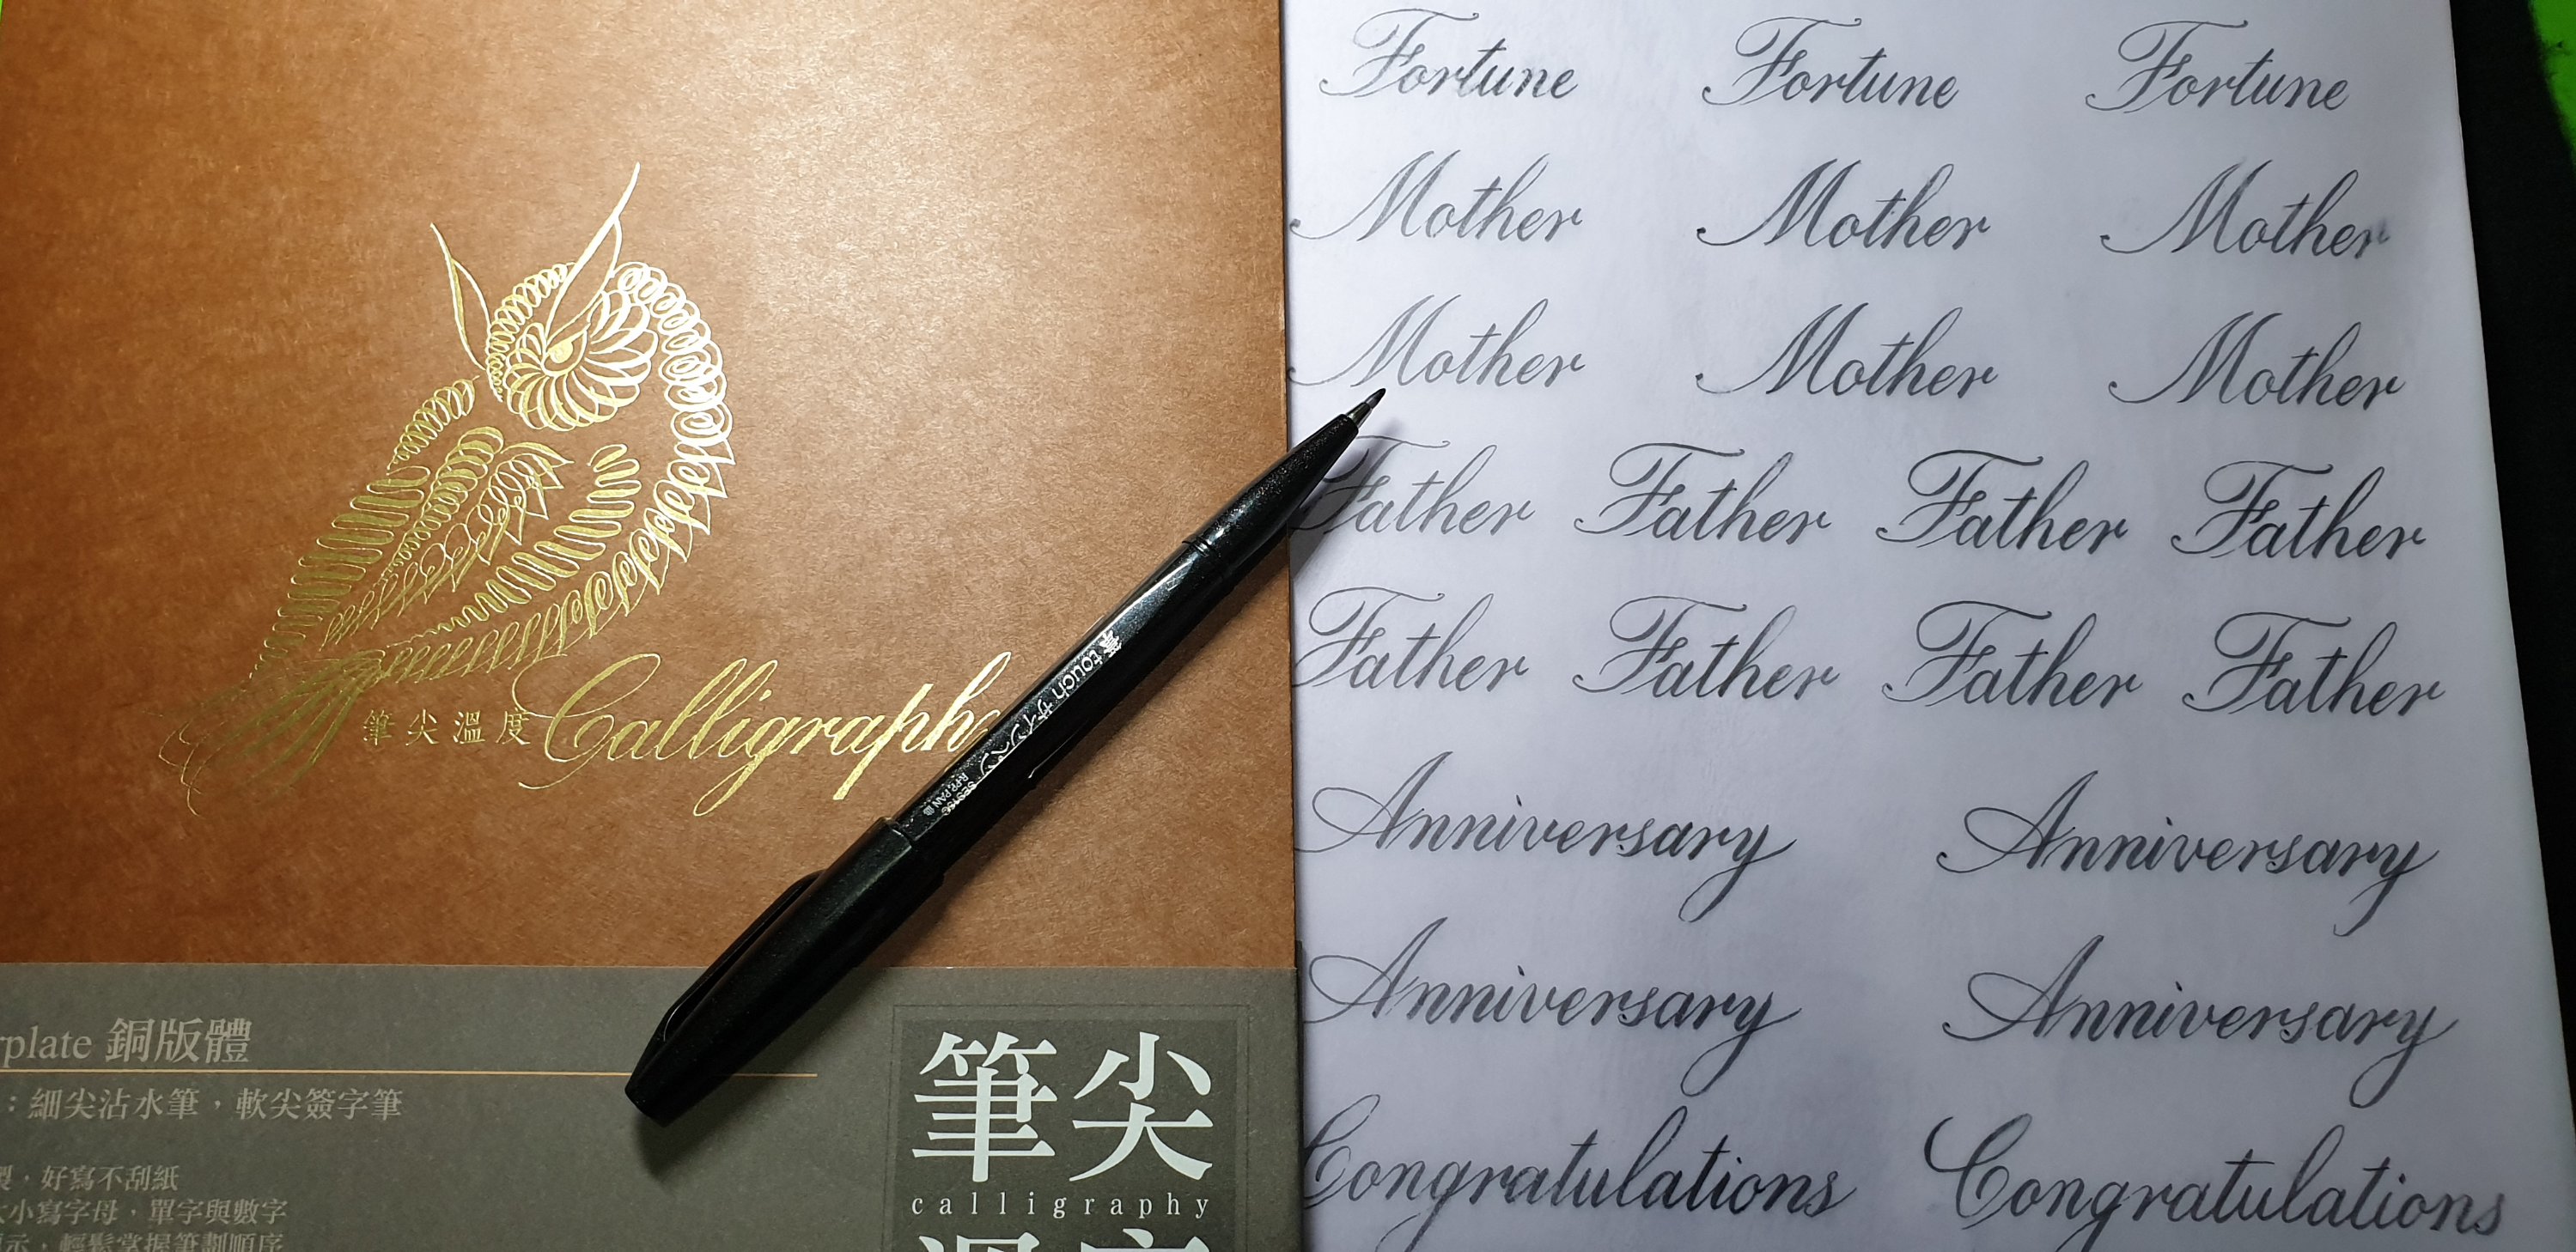 筆尖溫度 Calligraph
筆touch サインペン
plate 銅版體
：細尖沾水筆，軟尖簽字筆
，好寫不刮紙
小寫字母，單字與數字
示，輕鬆掌握筆劃順序
筆尖
calligraphy
Fortune Fortune Fortune
Mother Mother Mother
Mother Mother Mother
Father Father Father Father
Father Father Father Father
Anniversary Anniversary
Anniversary Anniversary
Congratulations Congratulations